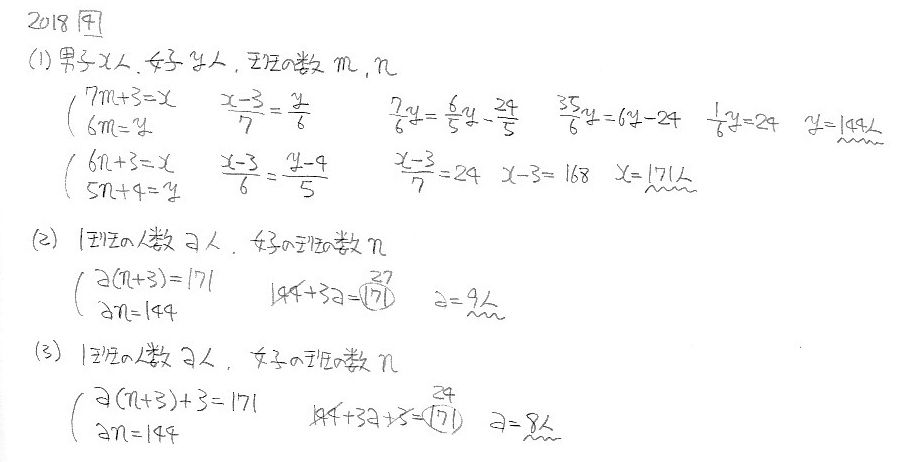 2018 4
(1) 男子x人、女子y人、班の数m,n
7m+3=x x-3/7=y/6 7/6y=6/5y-24/5 35/6y=6y-24 1/6y=24 y=144人
6m=y
6n+3=x x-3/6=y-4/5 x-3/7=24 x-3=168 x=171人
5n+4=y
(2) 1班の人数a人、女子の班の数n
a(n+3)=171 144+3a=171 27 a=9人
an=144
(3) 1班の人数a人、女子の班の数n
a(n+3)+3=171 144+3a+3=171 24 a=8人
an=144